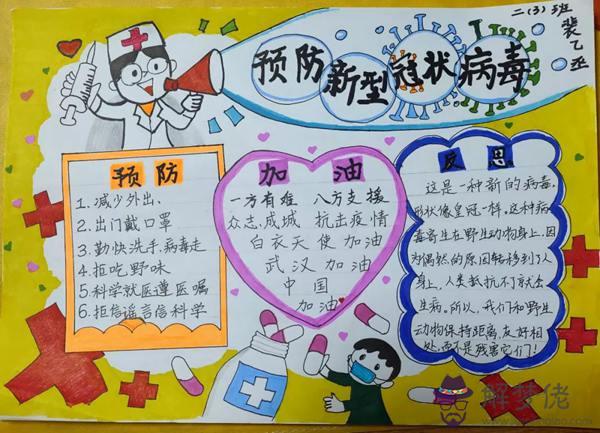 二(3)班
裴乙丞
预防新型冠状病毒
预防
1.减少外出、
2.出门戴口罩
3.勤快洗手,病毒走
4.拒吃野味
5.科学就医遵医嘱
6.拒信谣言信科学
加油
一方有难 八方支援
众志成城 抗击疫情
白衣天使加油
武汉加油
中国
加油
反思
这是一种新的病毒,
形状像皇冠一样,这种病
毒寄生在野生动物身上,因
为偶然的原因转移到了人
身上,人类抵抗不了就会
生病。所以,我们和野生
动物保持距离,友好相
处,而不是残害它们!
解梦佬